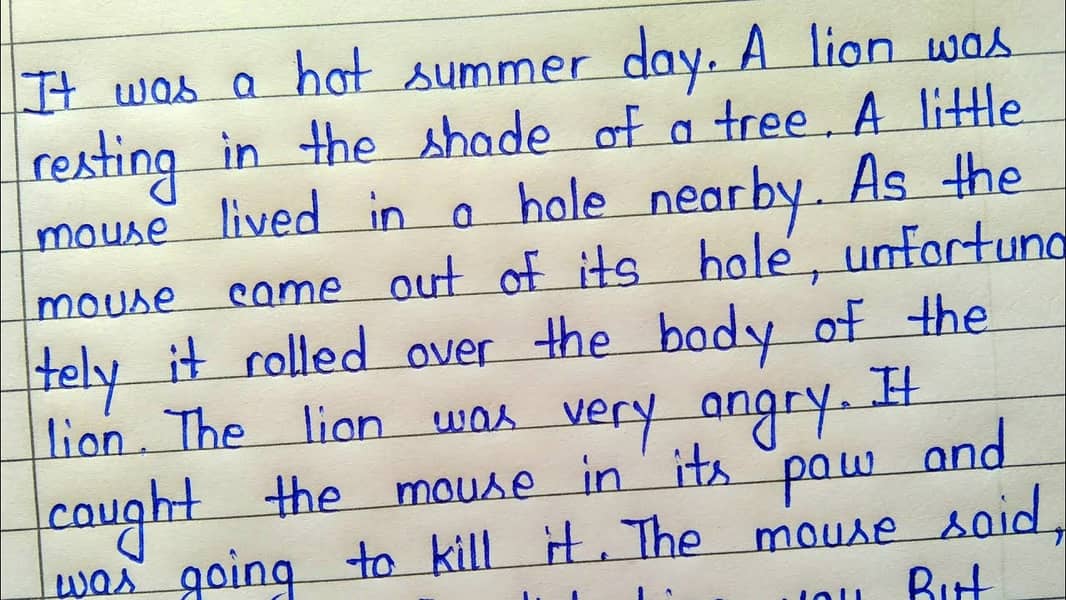 It was a hot summer day. A lion was
resting in the shade of a tree. A little
mouse lived in a hole nearby. As the
mouse came out of its hole, unfortuna
tely it rolled over the body of the
lion. The lion was very angry. It
caught the mouse in its paw and
was going to kill it. The mouse said,
you But